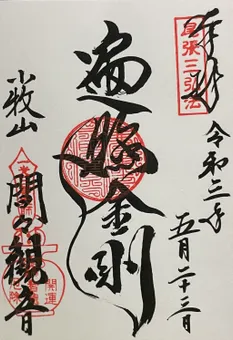 奉拝
尾張三弘法
令和三年
五月二十三日
遍照金剛
小牧山
間々観音
開運